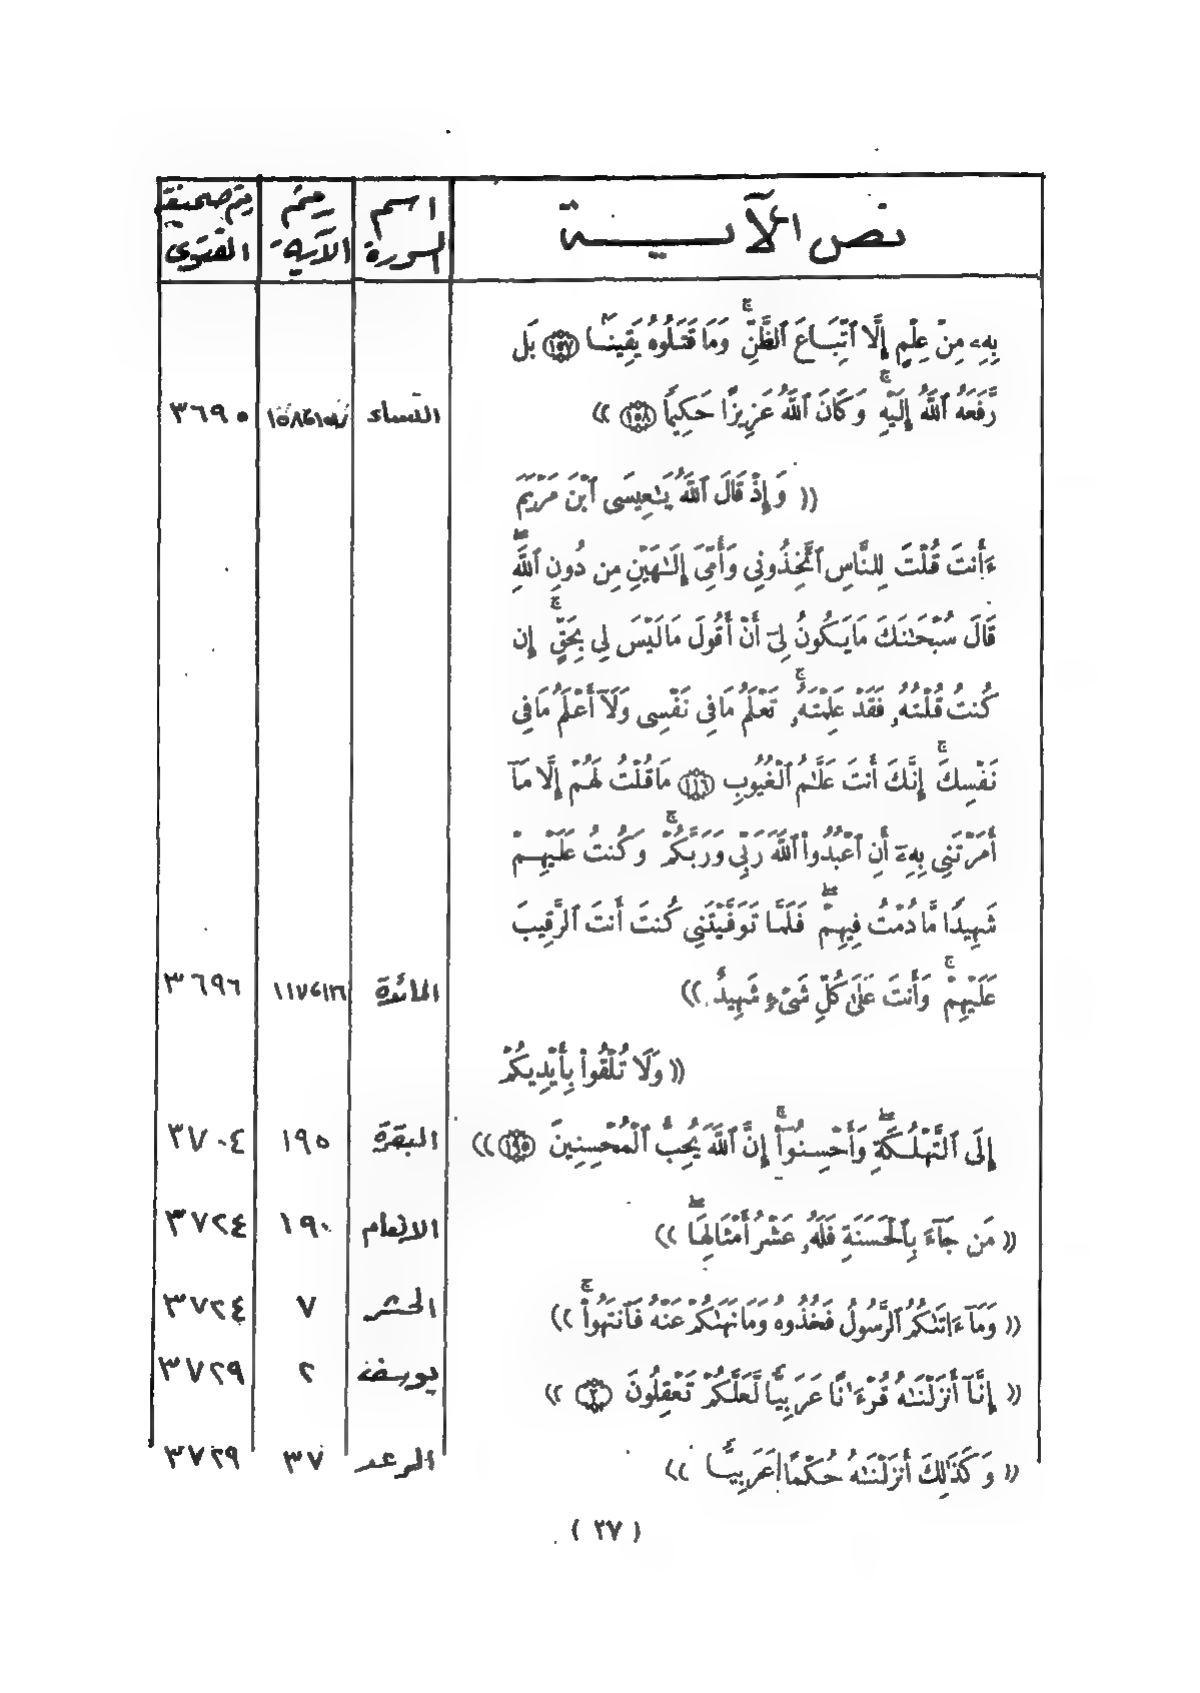 نص الآيــــة
اسم السورة
رقم الآية
رقم صحيفة الفتوى
بِهِۦ مِنْ عِلْمٍ إِلَّا ٱتِّبَاعَ ٱلظَّنِّۚ وَمَا قَتَلُوهُ يَقِينَۢا ﴿١٥٧﴾ بَل
رَّفَعَهُ ٱللَّهُ إِلَيْهِۚ وَكَانَ ٱللَّهُ عَزِيزًا حَكِيمًا ﴿١٥٨﴾ )) النساء ١٥٧،١٥٨ ٣٦٩٥
(( وَإِذْ قَالَ ٱللَّهُ يَٰعِيسَى ٱبْنَ مَرْيَمَ
ءَأَنتَ قُلْتَ لِلنَّاسِ ٱتَّخِذُونِى وَأُمِّىَ إِلَٰهَيْنِ مِن دُونِ ٱللَّهِۖ
قَالَ سُبْحَٰنَكَ مَا يَكُونُ لِىٓ أَنْ أَقُولَ مَا لَيْسَ لِى بِحَقٍّۚ إِن
كُنتُ قُلْتُهُۥ فَقَدْ عَلِمْتَهُۥۚ تَعْلَمُ مَا فِى نَفْسِى وَلَآ أَعْلَمُ مَا فِى
نَفْسِكَۚ إِنَّكَ أَنتَ عَلَّٰمُ ٱلْغُيُوبِ ﴿١١٦﴾ مَا قُلْتُ لَهُمْ إِلَّا مَآ
أَمَرْتَنِى بِهِۦٓ أَنِ ٱعْبُدُوا۟ ٱللَّهَ رَبِّى وَرَبَّكُمْۚ وَكُنتُ عَلَيْهِمْ
شَهِيدًا مَّا دُمْتُ فِيهِمْۖ فَلَمَّا تَوَفَّيْتَنِى كُنتَ أَنتَ ٱلرَّقِيبَ
عَلَيْهِمْۚ وَأَنتَ عَلَىٰ كُلِّ شَىْءٍ شَهِيدٌ )) المائدة ١١٦،١١٧ ٣٦٩٦
(( وَلَا تُلْقُوا۟ بِأَيْدِيكُمْ
إِلَى ٱلتَّهْلُكَةِۖ وَأَحْسِنُوٓا۟ۚ إِنَّ ٱللَّهَ يُحِبُّ ٱلْمُحْسِنِينَ ﴿١٩٥﴾ )) البقرة ١٩٥ ٣٧٠٤
(( مَن جَآءَ بِٱلْحَسَنَةِ فَلَهُۥ عَشْرُ أَمْثَالِهَاۖ )) الانعام ١٩٠ ٣٧٢٤
(( وَمَآ ءَاتَىٰكُمُ ٱلرَّسُولُ فَخُذُوهُ وَمَا نَهَىٰكُمْ عَنْهُ فَٱنتَهُوا۟ۚ )) الحشر ٧ ٣٧٢٤
(( إِنَّآ أَنزَلْنَٰهُ قُرْءَٰنًا عَرَبِيًّا لَّعَلَّكُمْ تَعْقِلُونَ ﴿٢﴾ )) يوسف ٢ ٣٧٢٩
(( وَكَذَٰلِكَ أَنزَلْنَٰهُ حُكْمًا عَرَبِيًّا )) الرعد ٣٧ ٣٧٢٩
( ٢٧ )